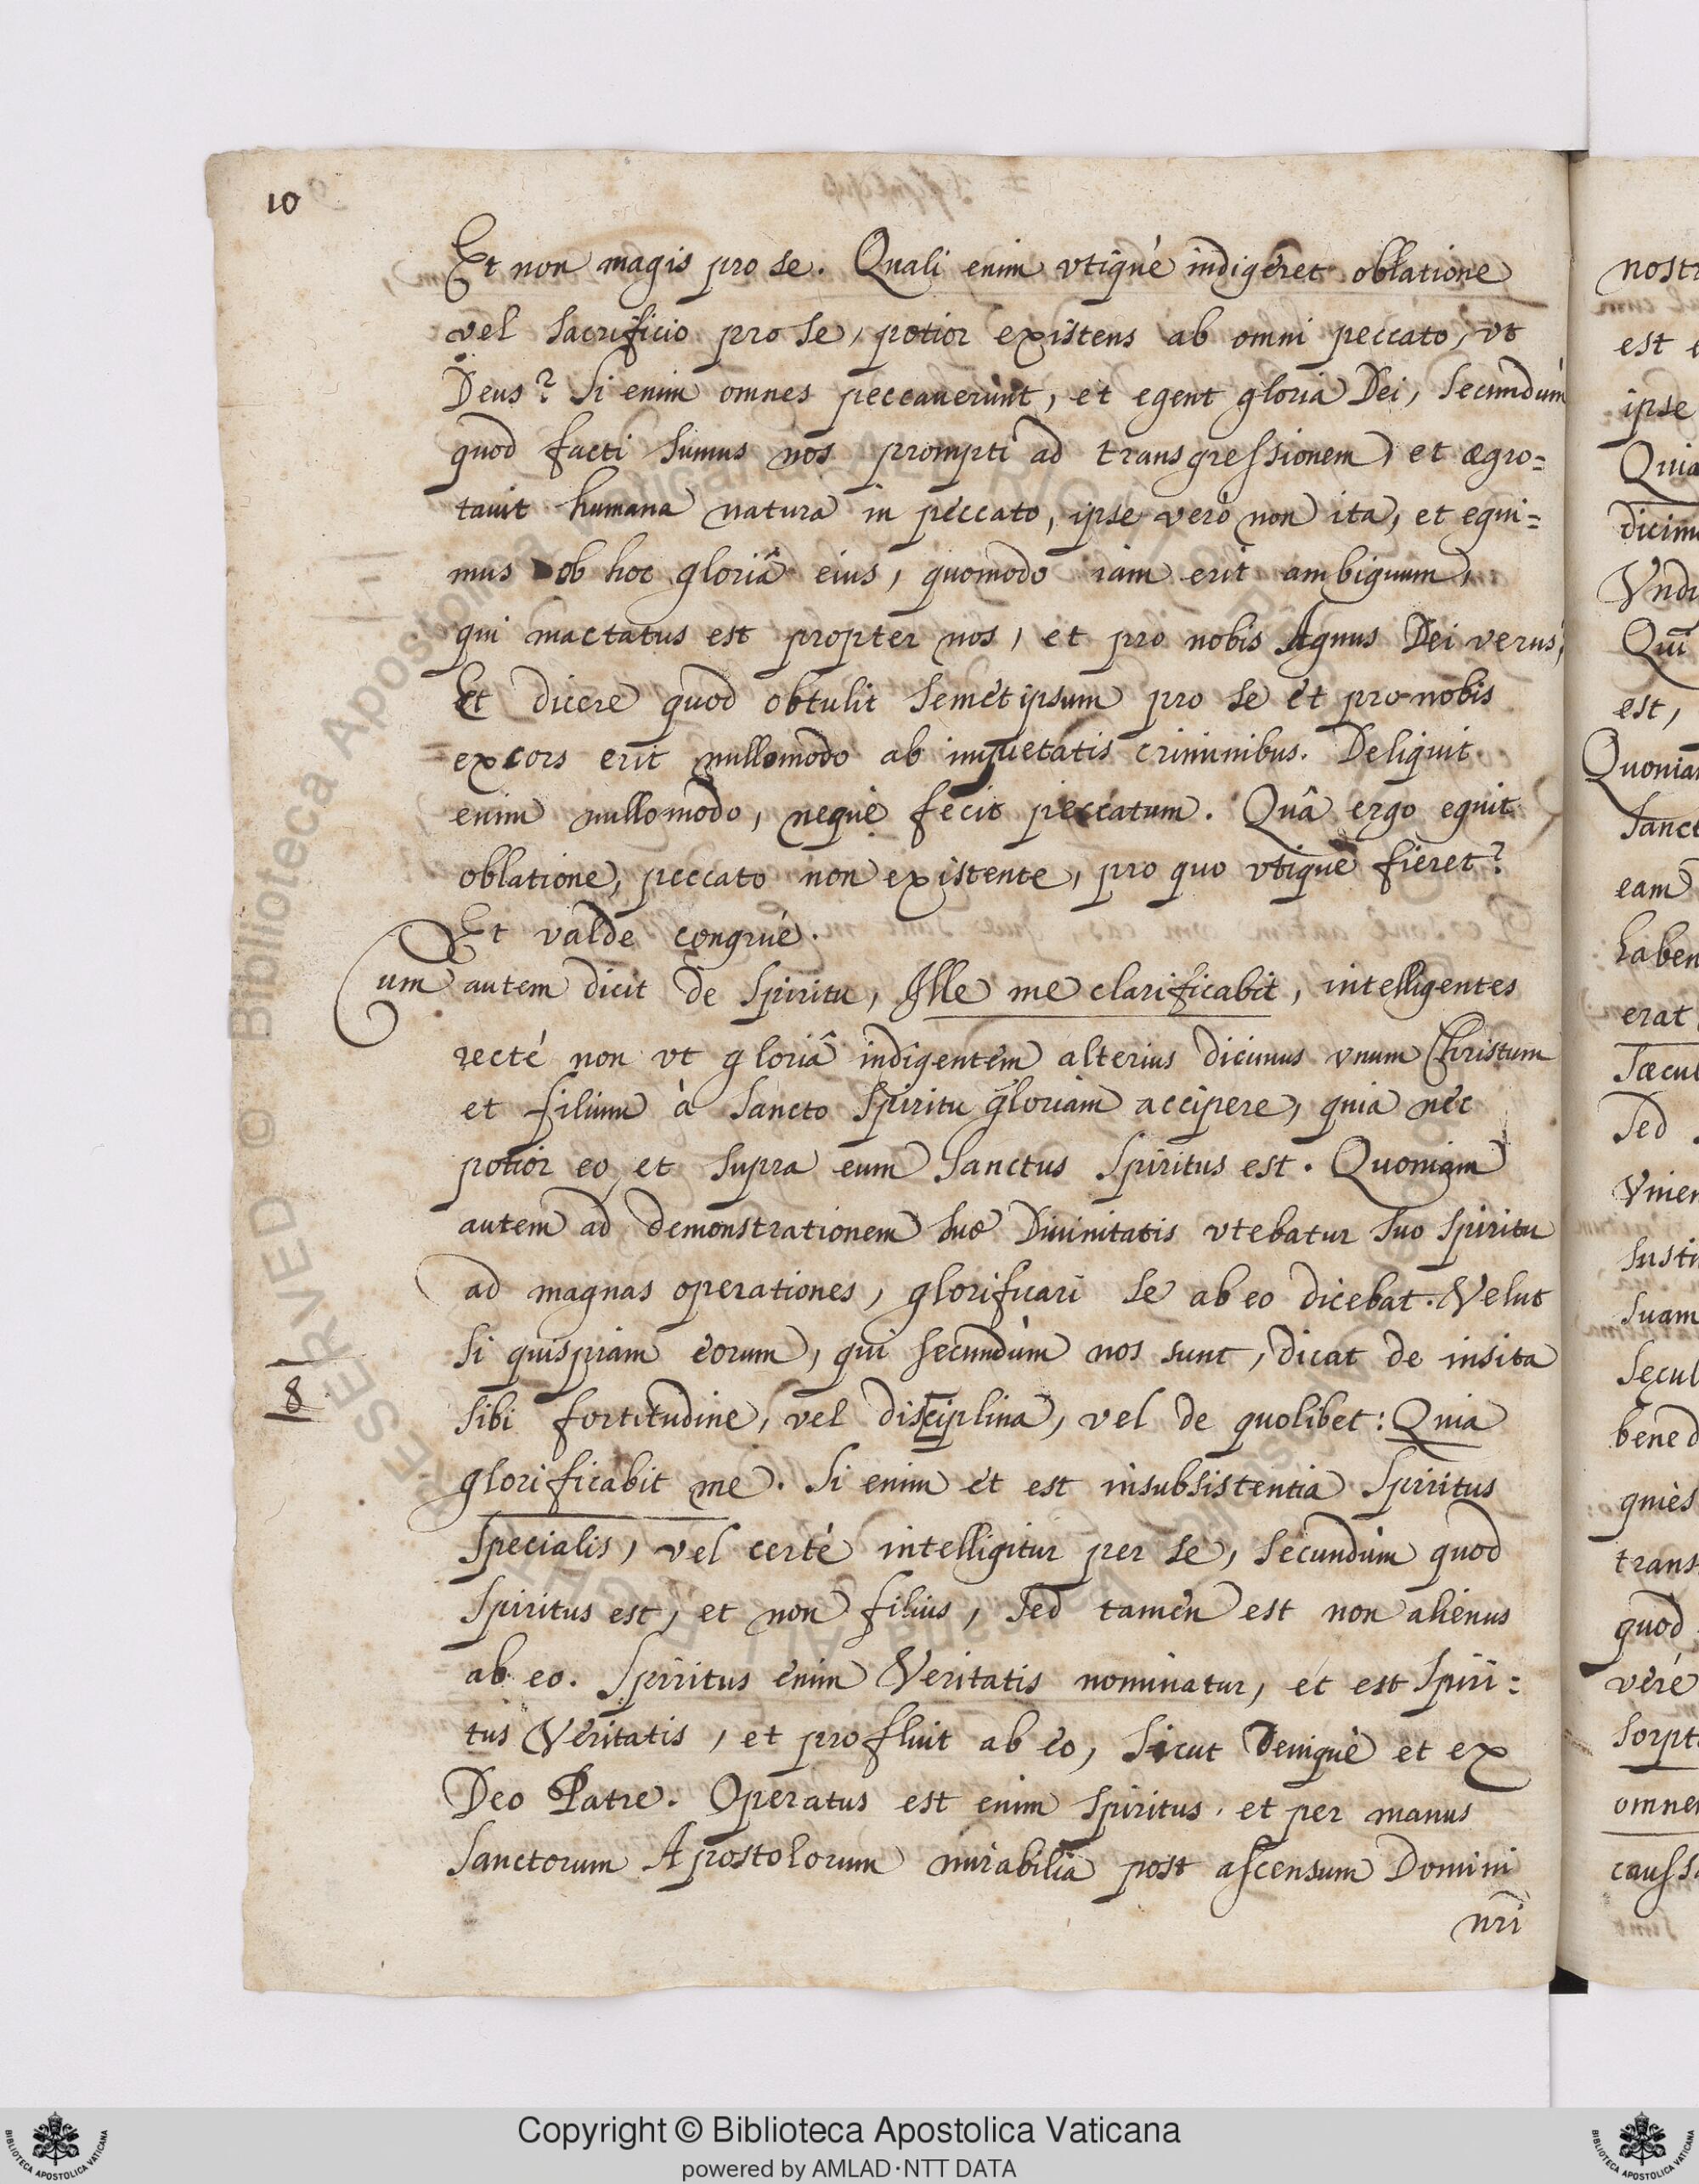 10
Et non magis pro se. Quali enim vtiquè indigeret oblatione
vel sacrificio pro se, potior existens ab omni peccato, vt
Deus? Si enim omnes peccauerunt, et egent gloria Dei, secundùm
quod facti sumus nos prompti ad transgressionem, et ægro=
tauit humana natura in peccato, ipse verò non ita, et egui=
mus ob hoc gloriâ eius, quomodo iam erit ambiguum,
qui mactatus est propter nos, et pro nobis Agnus Dei verus,
Et dicere quod obtulit semetipsum pro se et pro nobis
excors erit nullomodo ab impietatis criminibus. Deliquit
enim nullomodo, nequè fecit peccatum. Quâ ergo eguit
oblatione, peccato non existente, pro quo vtiquè fieret?
Et valde congrué.
Cum autem dicit de Spiritu, Ille me clarificabit, intelligentes
recté non vt gloriâ indigentem alterius dicimus vnum Christum
et filium à Sancto Spiritu gloriam accipere, quia nec
potior eo, et supra eum Sanctus Spiritus est. Quoniam
autem ad demonstrationem suæ Diuinitatis vtebatur suo Spiritu
ad magnas operationes, glorificari se ab eo dicebat. Velut
si quispiam eorum, qui secundùm nos sunt, dicat de insita
8
sibi fortitudine, vel disciplina, vel de quolibet: Quia
glorificabit me. Si enim et est insubsistentia Spiritus
specialis, vel certé intelligitur per se, secundùm quod
Spiritus est, et non filius, sed tamen est non alienus
ab eo. Spiritus enim Veritatis nominatur, et est Spiri=
tus Veritatis, et profluit ab eo, sicut deniquè et ex
Deo Patre. Operatus est enim Spiritus et per manus
Sanctorum Apostolorum mirabilia post ascensum Domini
nri
nost
est
ipse
Quia
dicim
Vnd
Qui
est,
Quonia
Sanct
eam
haben
erat
Sæcul
Sed
Vnien
susti
suam
Secul
bened
trans
quod
veré
sorpt
omne
causs
Copyright © Biblioteca Apostolica Vaticana
powered by AMLAD·NTT DATA